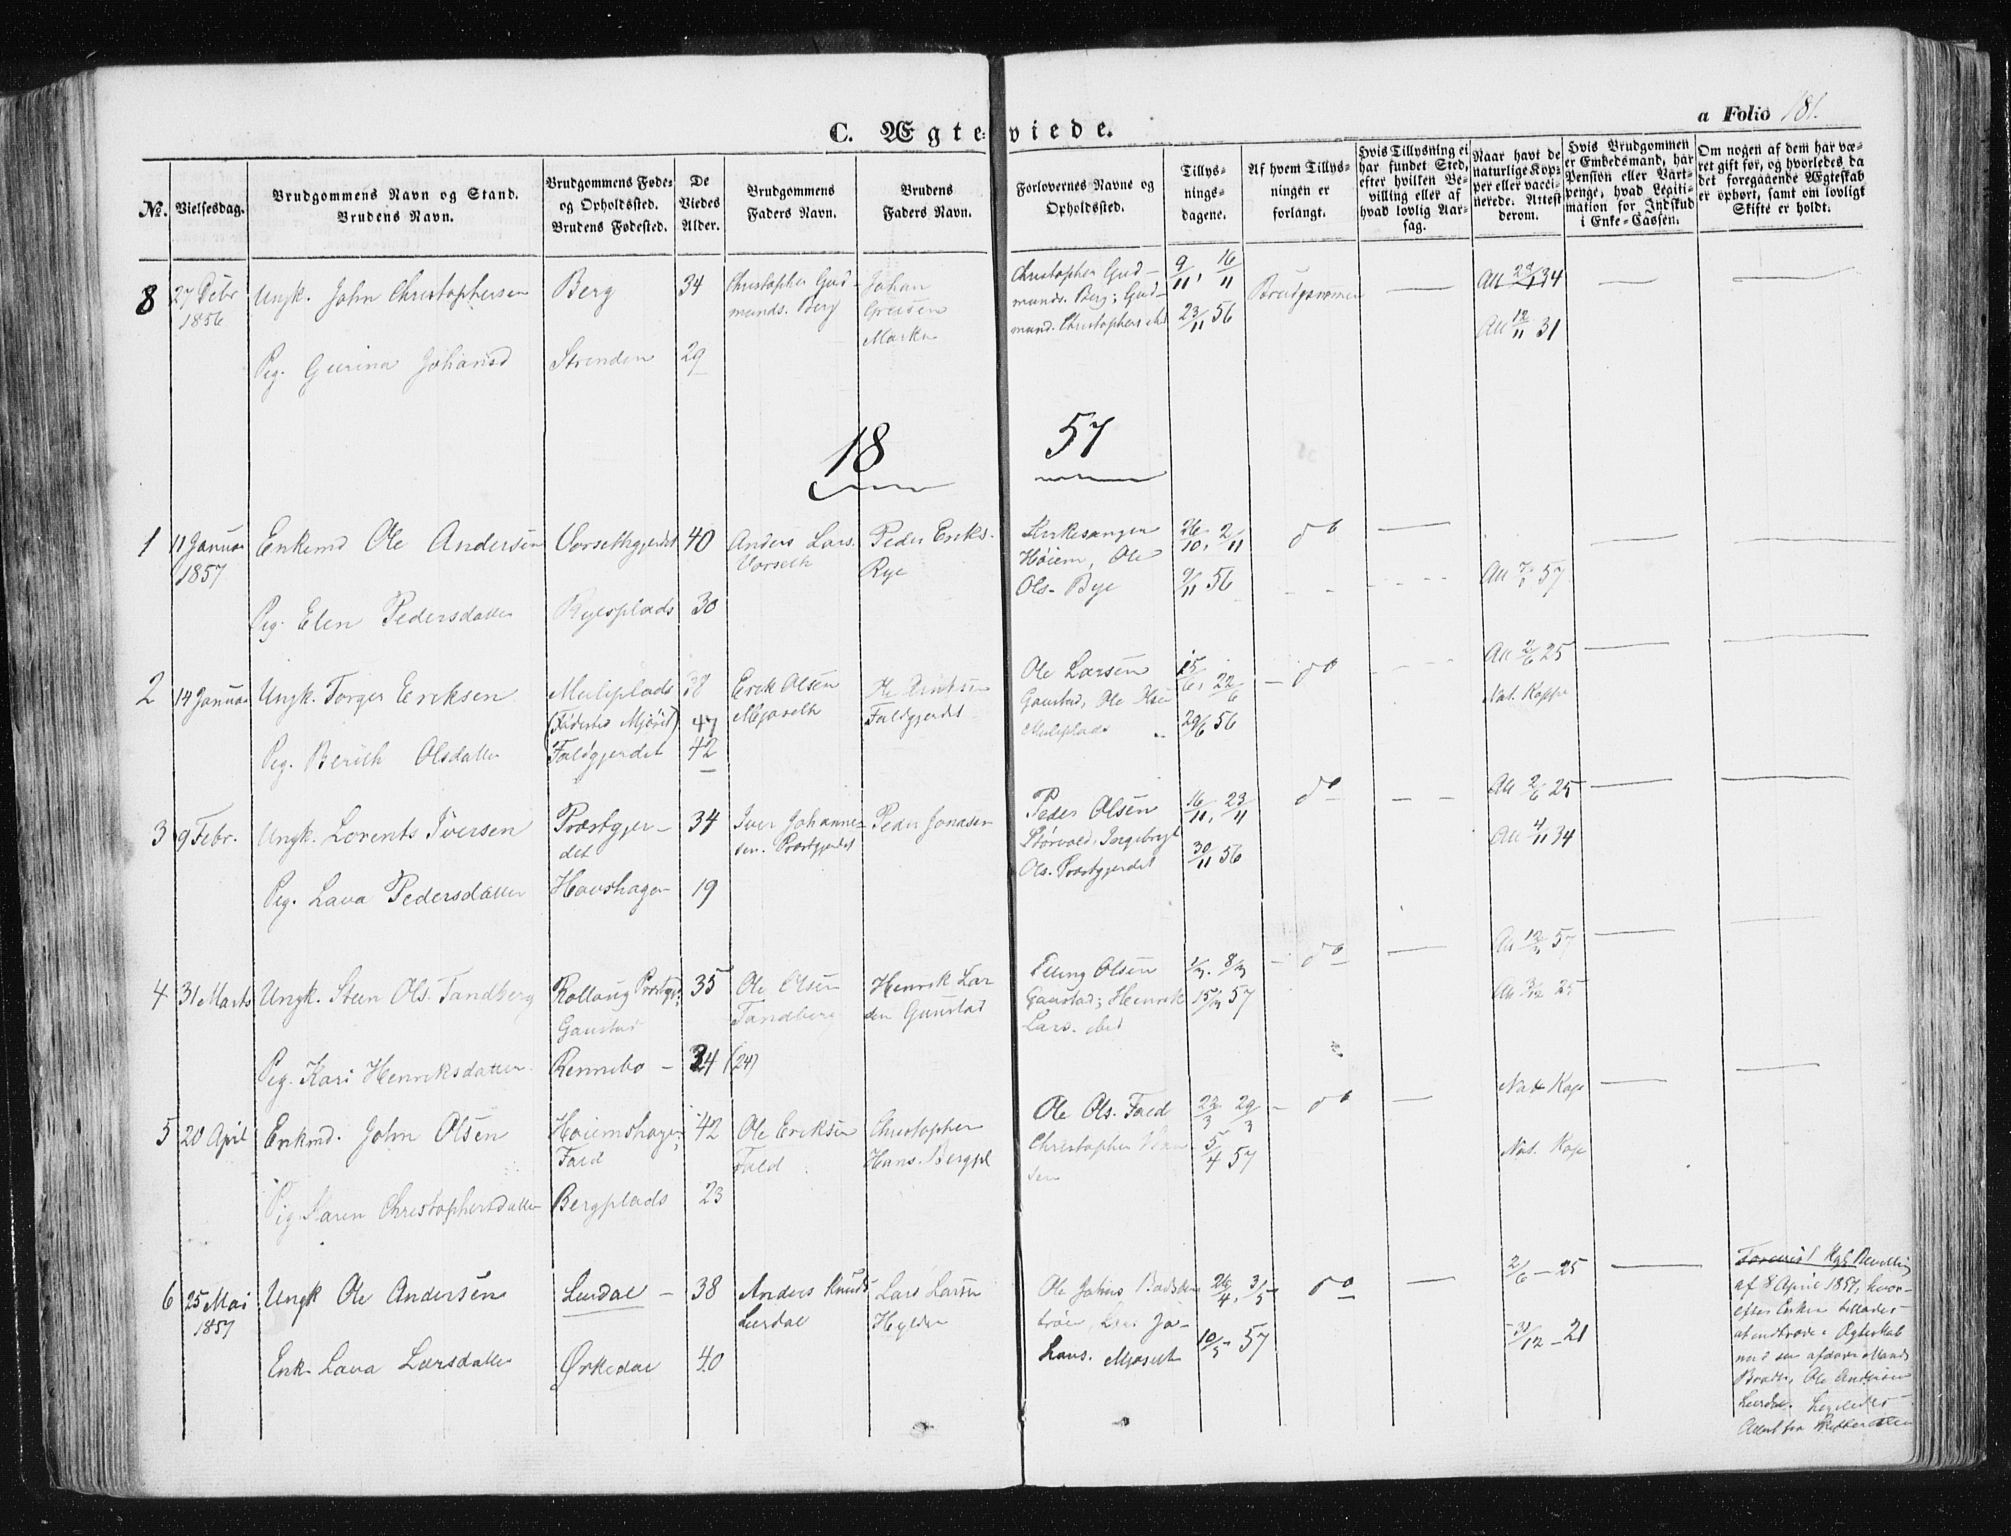 C. Ægteviede.
a Folio 181.
No.
Vielsesdag.
Brudgommens Navn og Stand.
Brudens Navn.
Brudgommens Føde=
og Opholdssted.
Brudens Fødested.
De
Viedes
Alder.
Brudgommens
Faders Navn.
Brudens
Faders Navn.
Forlovernes Navne og
Opholdssted.
Tillys=
nings=
dagene.
Af hvem Tillys=
ningen er
forlangt.
Hvis Tillysning ei
har fundet Sted,
efter hvilken Be=
villing eller af
hvad lovlig Aar=
sag.
Naar havt de
naturlige Kop=
per eller vacci=
nerede. Attest
derom.
Hvis Brudgommen
er Embedsmand, har
Pension eller Vart=
penge, hvad Legiti=
mation for Indskud
i Enke=Cassen.
Om nogen af dem har væ=
ret gift før, og hvorledes da
det foregaaende Ægteskab
er ophørt, samt om lovligt
Skifte er holdt.
8
27 Debr
1856
Ungk. John Christophersen
Berg
34
Christopher Gud-
munds. Berg
Johan
Marka
Christopher Gud-
munds. Berg; Gud-
mund. Christophers
9/11, 16/11
23/11 56
Brudgommen
Att 34
Att 12/11 31
Pig. Gurina Johansd
Strenden
29
18 57
1
11 Januar
1857
Enkemd Ole Andersen
Vorsethgjerdet
40
Anders Lars.
Vorseth
Peder Eriks.
Rye
Kirkesanger
Høiem, Ole
Ols. Bye
26/10, 2/11
9/11 56
do
Att 57
Pig. Elen Pedersdatter
Ryesplads
30
2
14 Januar
Ungk. Torger Eriksen
Meleplads
38
Erik Olsen
Mjøseth
Faldgjerdet
47
Ole Larsen
Gaustad, Ole
Meleplads
15/6, 22/6
29/6 56
do
Att 2/6 25
Nat. Koppe
Pig. Berith Olsdatter
Faldgjerdet
42
3
9 Febr.
Ungk. Lorents Iversen
Præstgjer-
det
34
Iver Johanne-
sen. Præstgjerdet
Peder Jonasen
Peder Olsen
Størvold, Ingebrigt
Ols. Præstgjerdet
16/11, 23/11
30/11 56
do
Att 2/6 25
Att 4/11 34
Pig. Lava Pedersdatter
Havshagen
19
4
31 Marts
Ungk. Steen Ols. Tandberg
Gaustad
35
Ole Olsen
Tandberg
Henrik Lar
sen Gaustad
Elling Olsen
Gaustad; Henrik
Lars. ibid
1/3. 8/3
15/3 57
do
57
25
Pig. Kari Henriksdatter
Rennebo
24 (24)
5
20 April
Enkmd. John Olsen
Høiemshagen,
Fald
42
Ole Eriksen
Fald
Christopher
Hans. Bergpl
Ole Ols. Fald
Christopher
sen
22/3 29/3
5/4 57
do
Nat Kop
Nat. Kop
Pig Karen Christophersdatter
Bergplads
23
6
25 Mai
1857
Ungk Ole Andersen
Leerdal
38
Anders Knuds
Leerdal
Lars Larsen
Ole Johns
Mjøseth
26/4, 3/5
10/5 57
do
2/6 - 25
31/12 - 21
Kgl Bevilling
af 8 April 1857, hvor-
efter Enken tillades
at indtræde i Ægteskab
med sin afdøde Mands
Broder, Ole Andersen
Leerdal.
Attest fra Skifteretten
Enk. Lava Larsdatter
Ørkedal
40